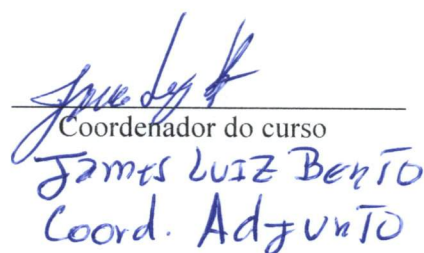 Coordenador do curso
James Luiz Bento
Coord. Adjunto